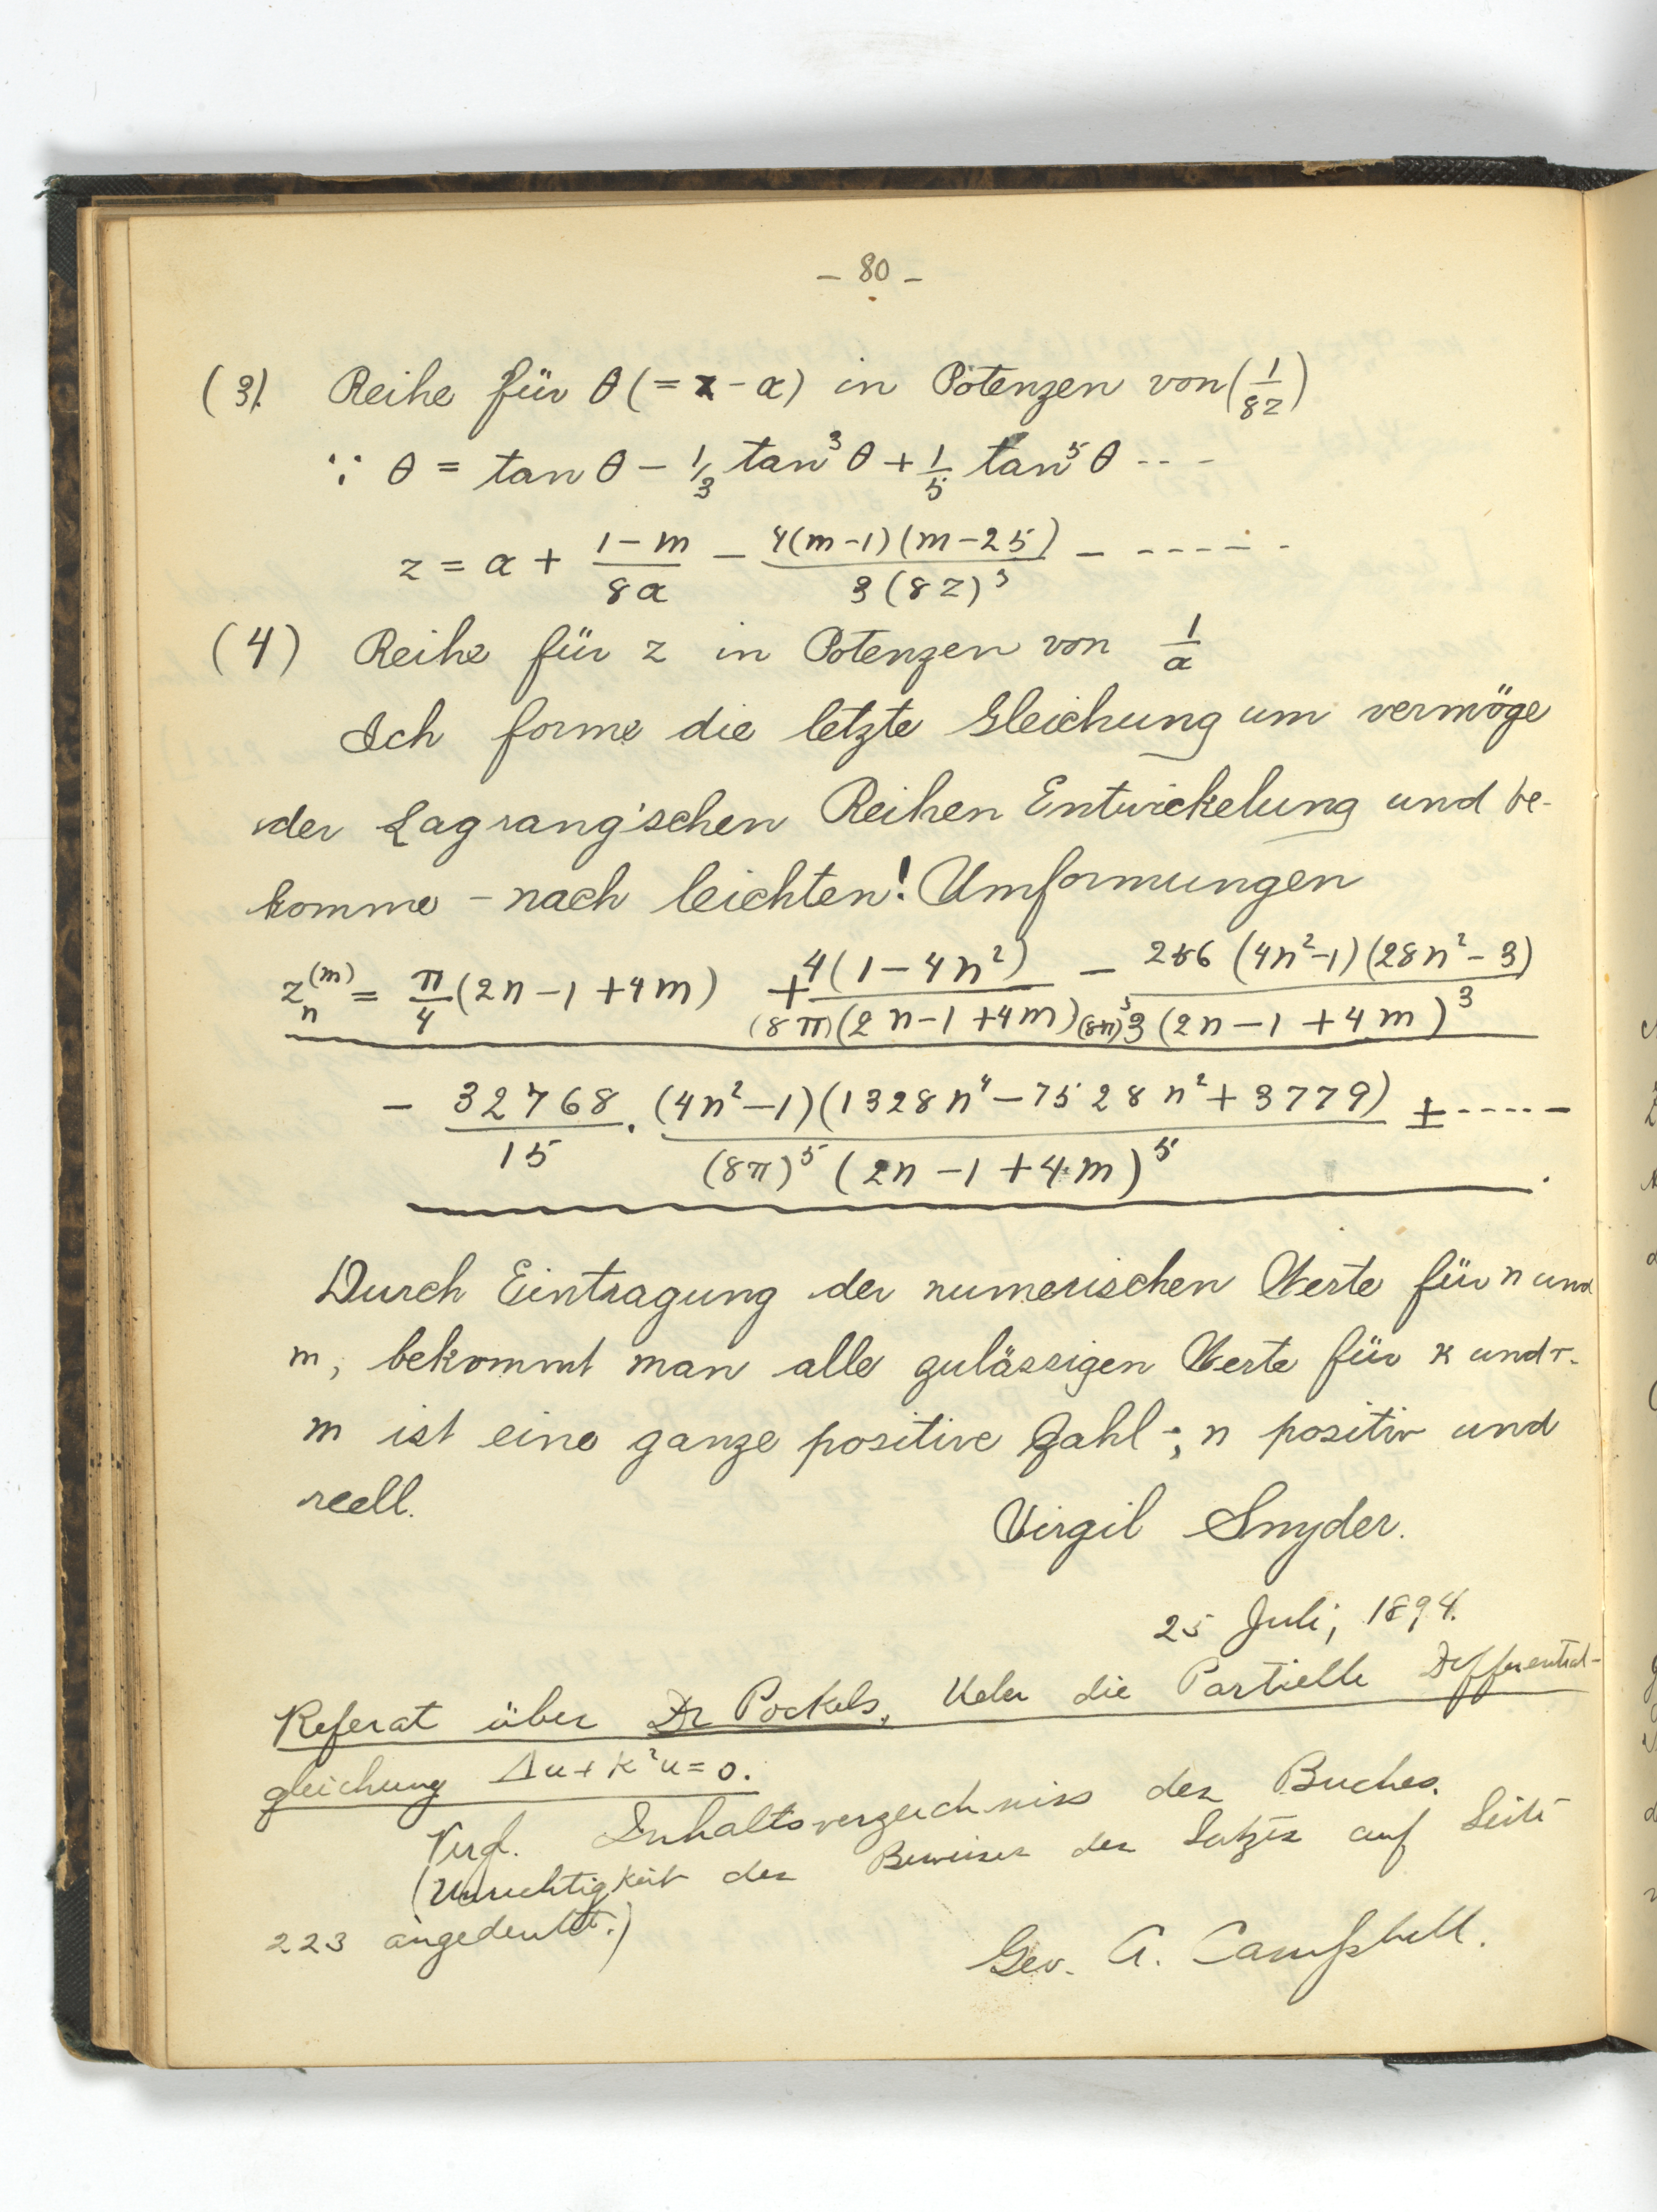 – 80 –
(3). Reihe für θ (= z – α) in Potenzen von (1/8z)
∵ θ = tan θ – 1/3 tan³ θ + 1/5 tan⁵ θ - - -
z = α + (1–m)/(8α) – 4(m–1)(m–25)/(3(8z)³) – - - - - - -
(4) Reihe für z in Potenzen von 1/α
Ich forme die letzte Gleichung um vermöge
der Lagrang'schen Reihen Entwickelung und be-
komme – nach leichten! Umformungen
z_n^(m) = π/4 (2n – 1 + 4m) + 4(1 – 4n²)/((8π)(2n–1+4m)) – 256 (4n²–1)(28n² – 3)/((8π)³ 3 (2n – 1 + 4m)³)
– 32768/15 · (4n²–1)(1328n⁴ – 7528n² + 3779)/((8π)⁵ (2n – 1 + 4m)⁵) ± - - - - - .
Durch Eintragung der numerischen Werte für n und
m, bekommt man alle zulässigen Werte für κ und r.
m ist eine ganze positive Zahl ; n positiv und
reell.
Virgil Snyder.
25 Juli, 1894.
Referat über Dr Pockels, Ueber die Partielle Differential-
gleichung Δu + k²u = 0.
Vergl. Inhaltsverzeichniss des Buches.
(Unrichtigkeit des Beweises des Satzes auf Seite
223 angedeutet.)
Geo. A. Campbell.